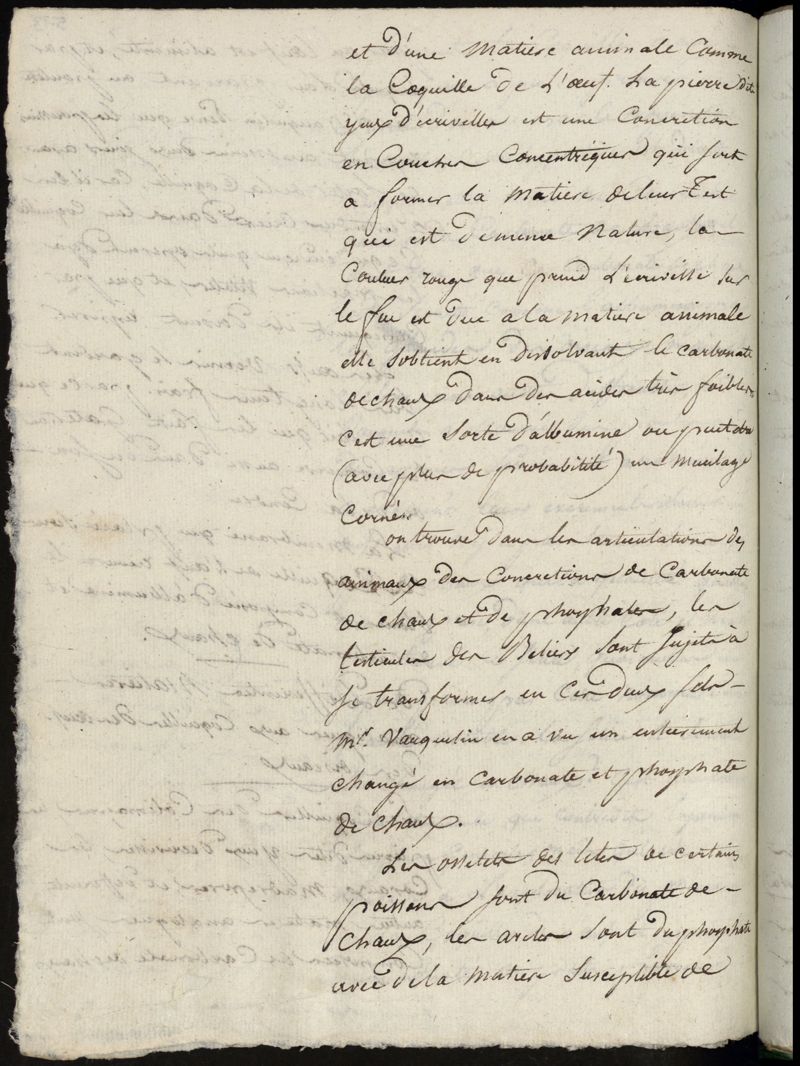 et d'une matiere animale comme
la Coquille de L'œuf. La pierre dite
yeux d'écrivelles est une Concretion
en Couches Concentriques qui sert
a former la matiere de leur Test
qui est de meme Nature, la
Couleur rouge que prend L'écrivelle sur
le feu est due a la matiere animale
elle s'obtient en dissolvant le carbonate
de chaux dans des acides très foibles
c'est une sorte d'albumine ou peut etre
(avec plus de probabilité) un mucilage
corné.
on trouve dans les articulations des
animaux des Concretions de Carbonate
de chaux et de phosphates, les
testicules des Beliers sont sujets à
se transformer en ces deux sels
Mr. Vauquelin en a vu un entierement
changé en Carbonate et phosphate
de chaux.
Les osselets des têtes de certains
poissons sont du Carbonate de
chaux, les arêtes sont du phosphate
avec de la matiere susceptible de